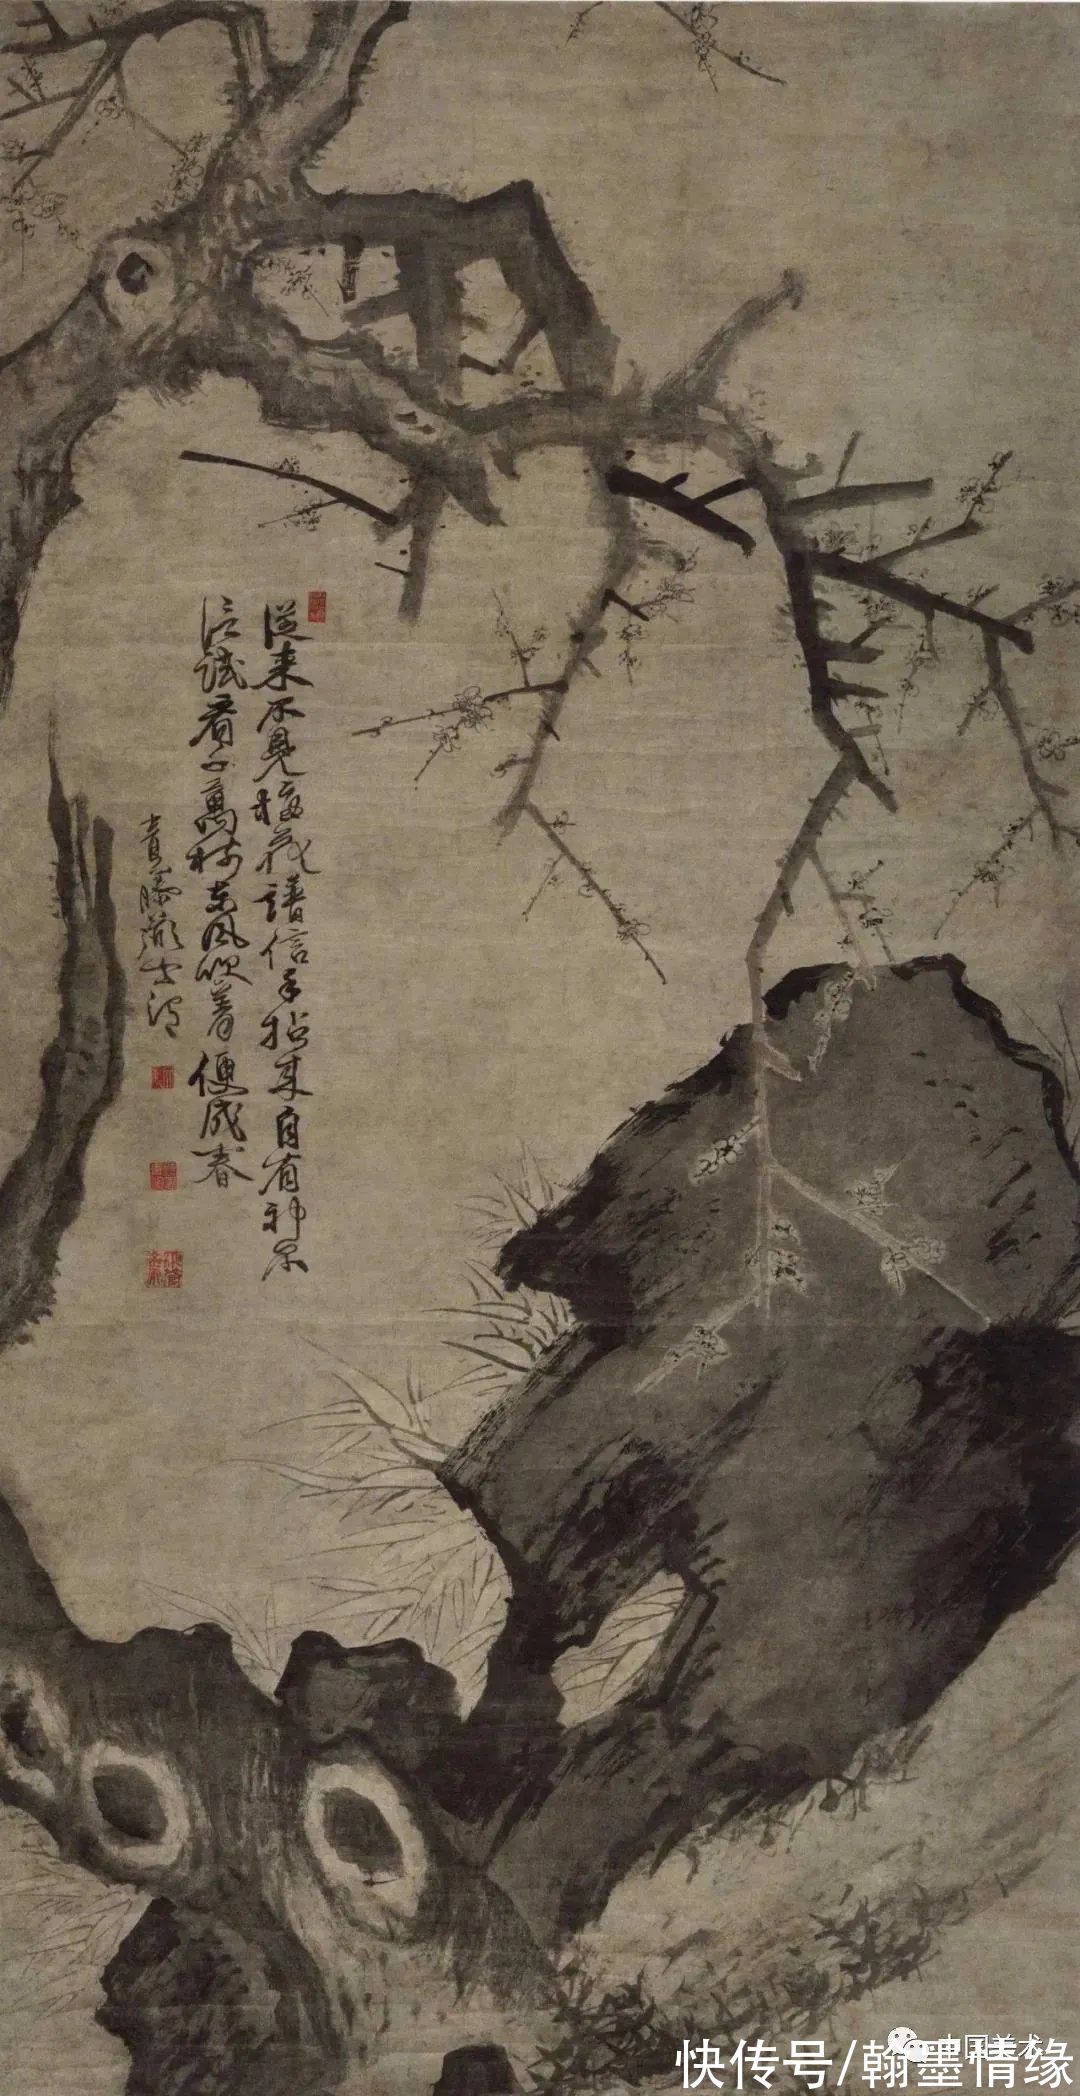 從来不見梅花譜信手拈来自有神不
信試看千萬樹東風吹着便成春
青藤道士渭
中国美术
快传号/翰墨情缘